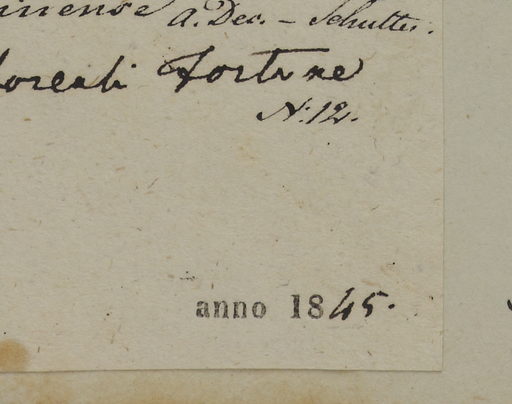 inense A. Dec. – Schultes.
boreali Fortune
N. 12.
anno 1845.